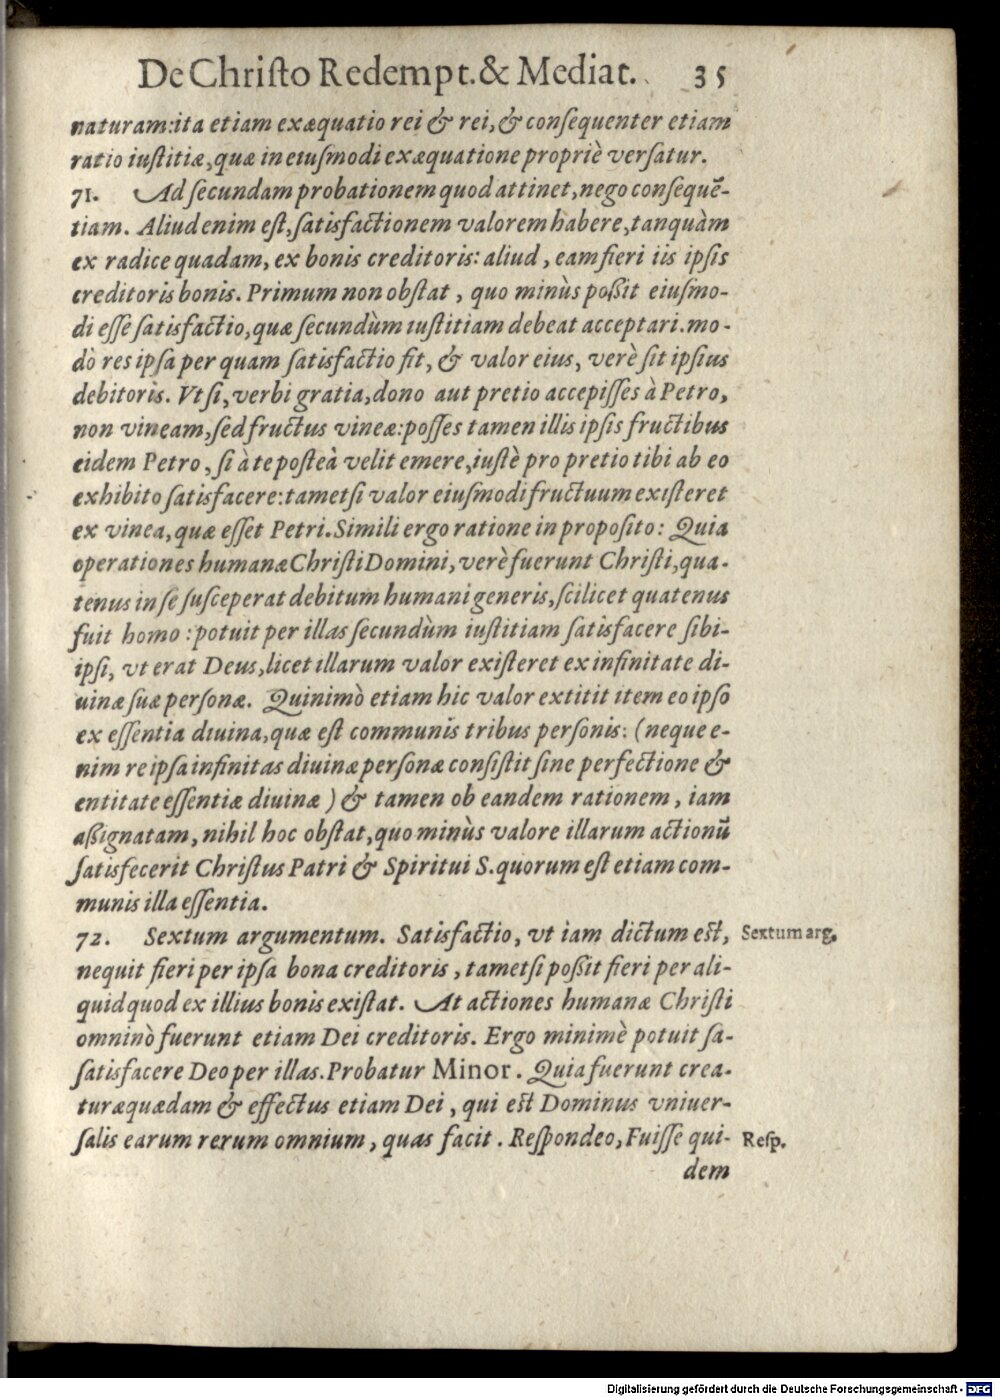 De Christo Redempt. & Mediat. 35
naturam: ita etiam exæquatio rei & rei, & consequenter etiam
ratio iustitiæ, quæ in eiusmodi exæquatione propriè versatur.
71. Ad secundam probationem quod attinet, nego consequē-
tiam. Aliud enim est, satisfactionem valorem habere, tanquàm
ex radice quadam, ex bonis creditoris: aliud, eam fieri iis ipsis
creditoris bonis. Primum non obstat, quo minùs poßit eiusmo-
di esse satisfactio, quæ secundùm iustitiam debeat acceptari. mo-
dò res ipsa per quam satisfactio fit, & valor eius, verè sit ipsius
debitoris. Vt si, verbi gratia, dono aut pretio accepisses à Petro,
non vineam, sed fructus vineæ: posses tamen illis ipsis fructibus
eidem Petro, si à te posteà velit emere, iustè pro pretio tibi ab eo
exhibito satisfacere: tametsi valor eiusmodi fructuum existeret
ex vinea, quæ esset Petri. Simili ergo ratione in proposito: Quia
operationes humanæ Christi Domini, verè fuerunt Christi, qua-
tenus in se susceperat debitum humani generis, scilicet quatenus
fuit homo: potuit per illas secundùm iustitiam satisfacere sibi-
ipsi, vt erat Deus, licet illarum valor existeret ex infinitate di-
uinæ suæ personæ. Quinimò etiam hic valor extitit item eo ipso
ex essentia diuina, quæ est communis tribus personis: (neque e-
nim reipsa infinitas diuinæ personæ consistit sine perfectione &
entitate essentiæ diuinæ) & tamen ob eandem rationem, iam
aßignatam, nihil hoc obstat, quo minùs valore illarum actionū
satisfecerit Christus Patri & Spiritui S. quorum est etiam com-
munis illa essentia.
72. Sextum argumentum. Satisfactio, vt iam dictum est, Sextum arg.
nequit fieri per ipsa bona creditoris, tametsi poßit fieri per ali-
quid quod ex illius bonis existat. At actiones humanæ Christi
omninò fuerunt etiam Dei creditoris. Ergo minimè potuit sa-
satisfacere Deo per illas. Probatur Minor. Quia fuerunt crea-
turæ quædam & effectus etiam Dei, qui est Dominus vniuer-
salis earum rerum omnium, quas facit. Respondeo, Fuisse qui- Resp.
dem
Digitalisierung gefördert durch die Deutsche Forschungsgemeinschaft - DFG